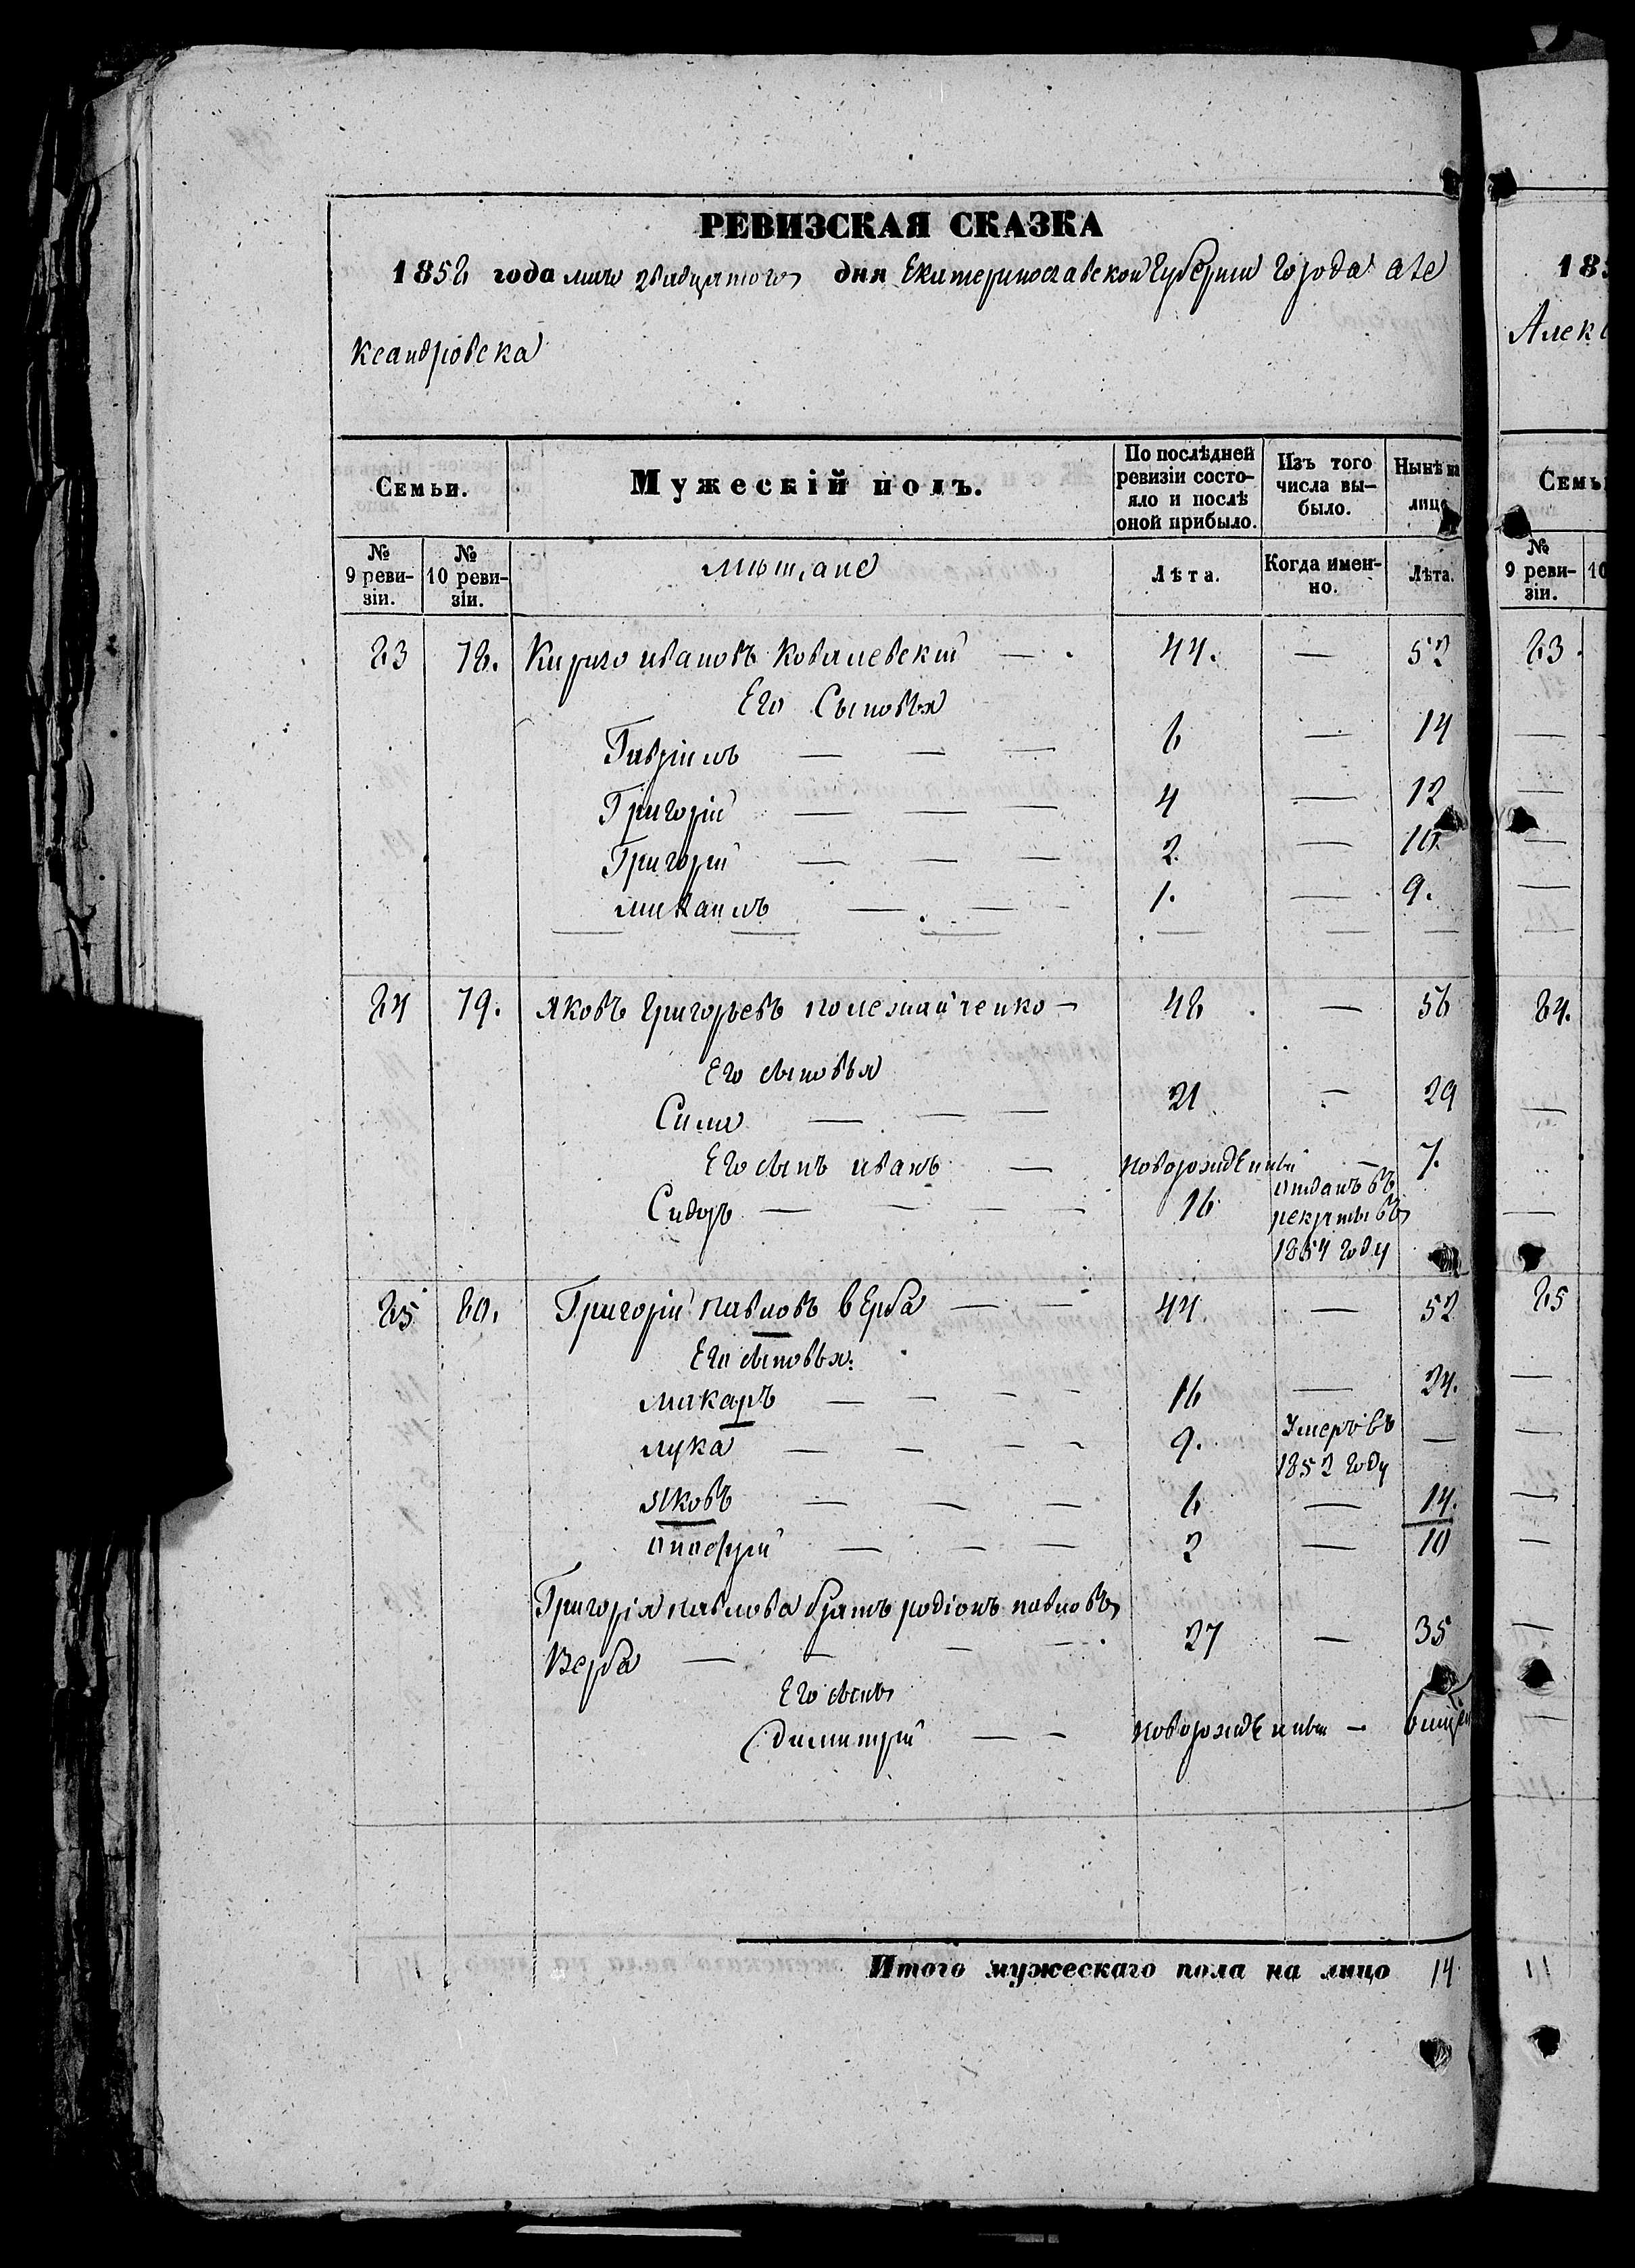 РЕВИЗСКАЯ СКАЗКА
1858 года мая двадцатого дня Екатеринославской Губернии города Але
ксандровска
Семьи. Мужескій полъ. По послѣдней ревизіи состояло и послѣ оной прибыло. Изъ того числа выбыло. Нынѣ на лицо
№ 9 ревизіи. № 10 ревизіи. мѣщане Лѣта. Когда именно. Лѣта.
83 78. Кирило ивановъ Ковалевскій — 44. — 52
Его Сыновья
Гавріилъ — — — 6 — 14
Григорій — — — 4 — 12
Григорій — — — 2. — 10.
михаилъ — — 1. — 9.
84 79. яковъ Григорьевъ полежайченко — 48 — 56
Его сыновья
Сила — — — 21 — 29
Его сынъ иванъ — новорожденный — 7.
Сидоръ — — — — 16 отданъ въ
рекруты въ
1854 году
85 80. Григорій павловъ вЕрба — — 44. — 52
Его сыновья:
макаръ — — — — 16 — 24.
лука — — — — 9. Умеръ въ —
1852 году
яковъ — — — 6 — 14.
онофрій — — — 2 — 10
Григорія павлова братъ родіонъ павловъ
Верба — — — — 27 — 35
Его сынъ
димитрій — — новорожденный —
Итого мужескаго пола на лицо 14
183
Алекс
Семьи
№ 9 ревизіи. 10
83.
84.
85
11